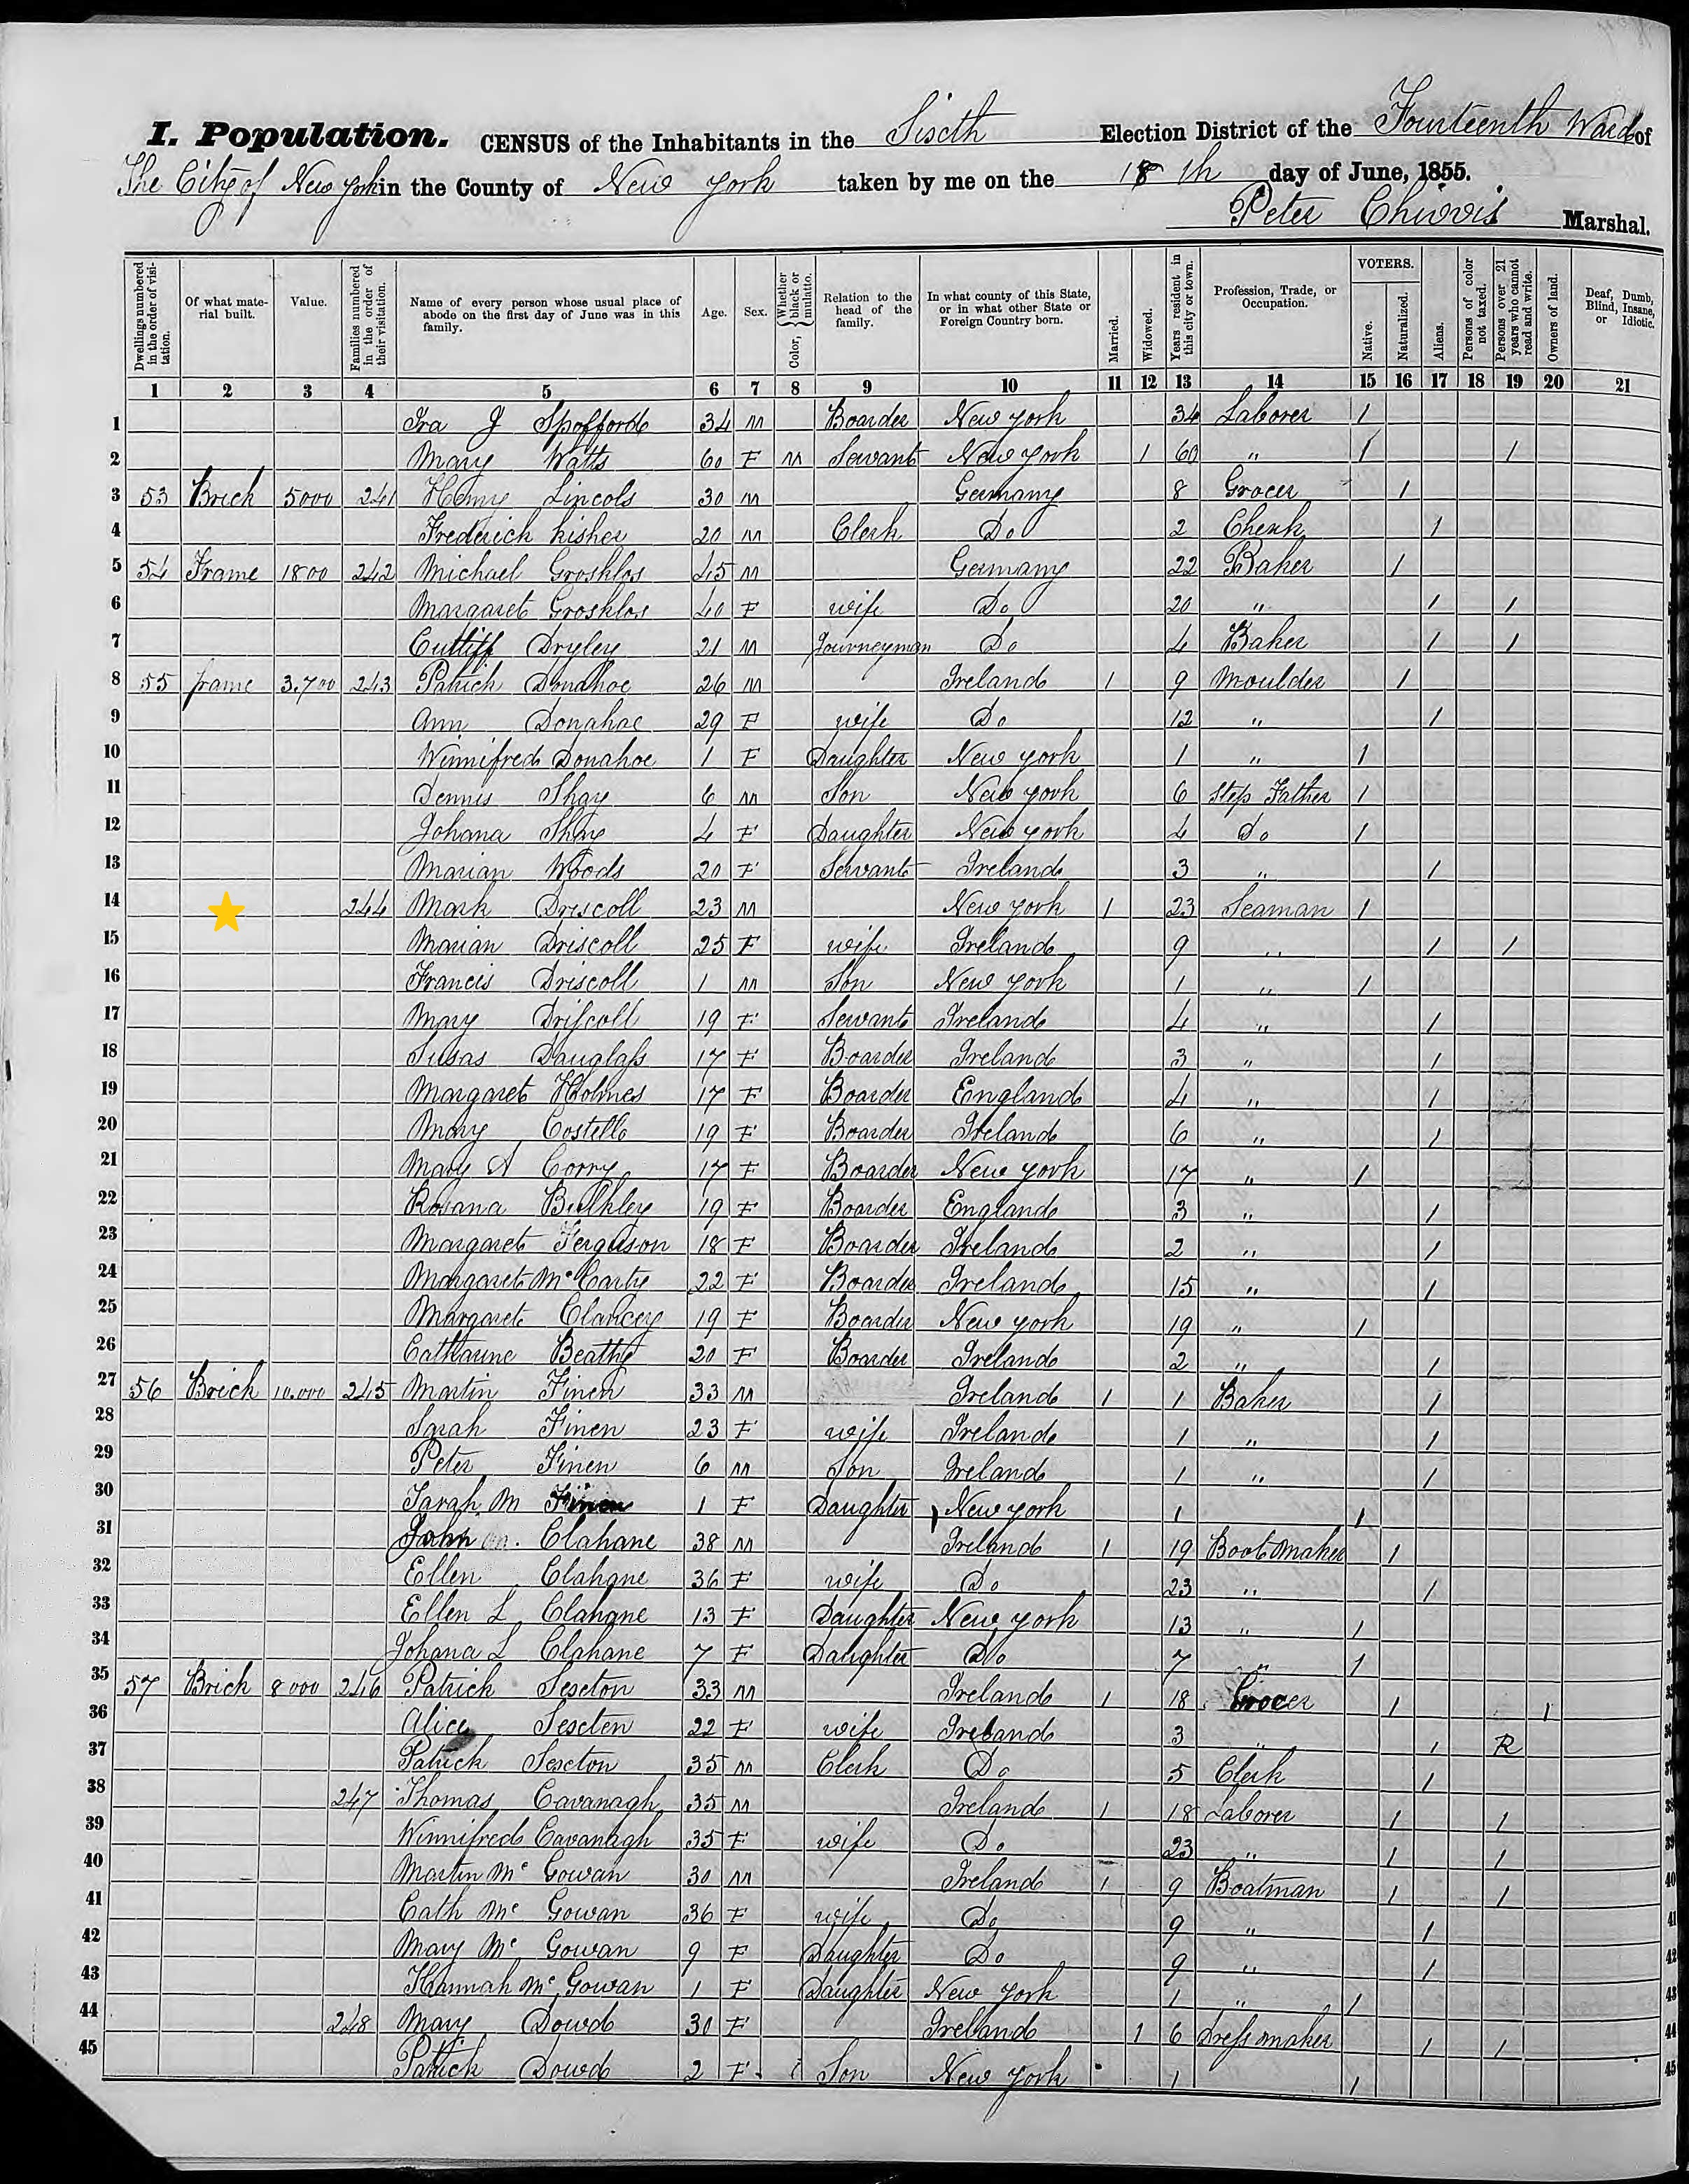 I. Population. CENSUS of the Inhabitants in the Sixth Election District of the Fourteenth Ward of
The City of New York in the County of New York taken by me on the 18th day of June, 1855.
Peter Marshal.
Dwellings numbered in the order of visitation. Of what material built. Value. Families numbered in the order of their visitation. Name of every person whose usual place of abode on the first day of June was in this family. Age. Sex. Color, Whether black or mulatto. Relation to the head of the family. In what county of this State, or in what other State or Foreign Country born. Married. Widowed. Years resident in this city or town. Profession, Trade, or Occupation. VOTERS. Native. Naturalized. Aliens. Persons of color not taxed. Persons over 21 years who cannot read and write. Owners of land. Deaf, Dumb, Blind, Insane, or Idiotic.
1 2 3 4 5 6 7 8 9 10 11 12 13 14 15 16 17 18 19 20 21
1 Ira J Spofford 34 M Boarder New York 34 Laborer 1
2 Mary Watts 60 F M Servant New York 1 60 " 1 1
3 53 Brick 5000 241 Henry Lincols 30 M Germany 8 Grocer 1
4 Frederick Kisher 20 M Clerk Do 2 Clerk 1
5 54 Frame 1800 242 Michael Grosklos 45 M Germany 22 Baker 1
6 Margaret Grosklos 40 F wife Do 20 " 1 1
7 Dryley 21 M Journeyman Do 4 Baker 1 1
8 55 frame 3.700 243 Patrick Donahoe 26 M Ireland 1 9 Moulder 1
9 Ann Donahoe 29 F wife Do 12 " 1
10 Winnifred Donahoe 1 F Daughter New York 1 " 1
11 Dennis Shay 6 M Son New York 6 Step Father 1
12 Johana Shay 4 F Daughter New York 4 Do 1
13 Marian Woods 20 F Servant Ireland 3 " 1
14 244 Mark Driscoll 23 M New York 1 23 Seaman 1
15 Marian Driscoll 25 F wife Ireland 9 " 1 1
16 Francis Driscoll 1 M Son New York 1 " 1
17 Mary Driscoll 19 F Servant Ireland 4 " 1
18 Susas Dauglass 17 F Boarder Ireland 3 " 1
19 Margaret Holmes 17 F Boarder England 4 " 1
20 Mary Costello 19 F Boarder Ireland 6 " 1
21 Mary A Corry 17 F Boarder New York 17 " 1
22 Rosana Bulkley 19 F Boarder England 3 " 1
23 Margaret Ferguson 18 F Boarder Ireland 2 " 1
24 Margaret McCarty 22 F Boarder Ireland 15 " 1
25 Margaret Clancey 19 F Boarder New York 19 " 1
26 Catharine Beathy 20 F Boarder Ireland 2 " 1
27 56 Brick 10.000 245 Martin Finen 33 M Ireland 1 1 Baker 1
28 Sarah Finen 23 F wife Ireland 1 " 1
29 Peter Finen 6 M Son Ireland 1 " 1
30 Sarah M Finen 1 F Daughter New York 1 1
31 John Clahane 38 M Ireland 1 19 Bootmaker 1
32 Ellen Clahane 36 F wife Do 23 " 1
33 Ellen L Clahane 13 F Daughter New York 13 " 1
34 Johana L Clahane 7 F Daughter Do 7 " 1
35 57 Brick 8000 246 Patrick Sexton 33 M Ireland 1 18 Grocer 1 1
36 Alice Sexten 22 F wife Ireland 3 " 1 R
37 Patrick Sexton 35 M Clerk Do 5 Clerk 1
38 247 Thomas Cavanagh 35 M Ireland 1 18 Laborer 1 1
39 Winnifred Cavanagh 35 F wife Do 23 " 1 1
40 Martin McGowan 30 M Ireland 1 9 Boatman 1 1
41 Cath McGowan 36 F wife Do 9 " 1
42 Mary McGowan 9 F Daughter Do 9 " 1
43 Hannah McGowan 1 F Daughter New York 1 " 1
44 248 Mary Dowd 30 F Ireland 1 6 Dressmaker 1 1
45 Patrick Dowd 2 F Son New York 1 1